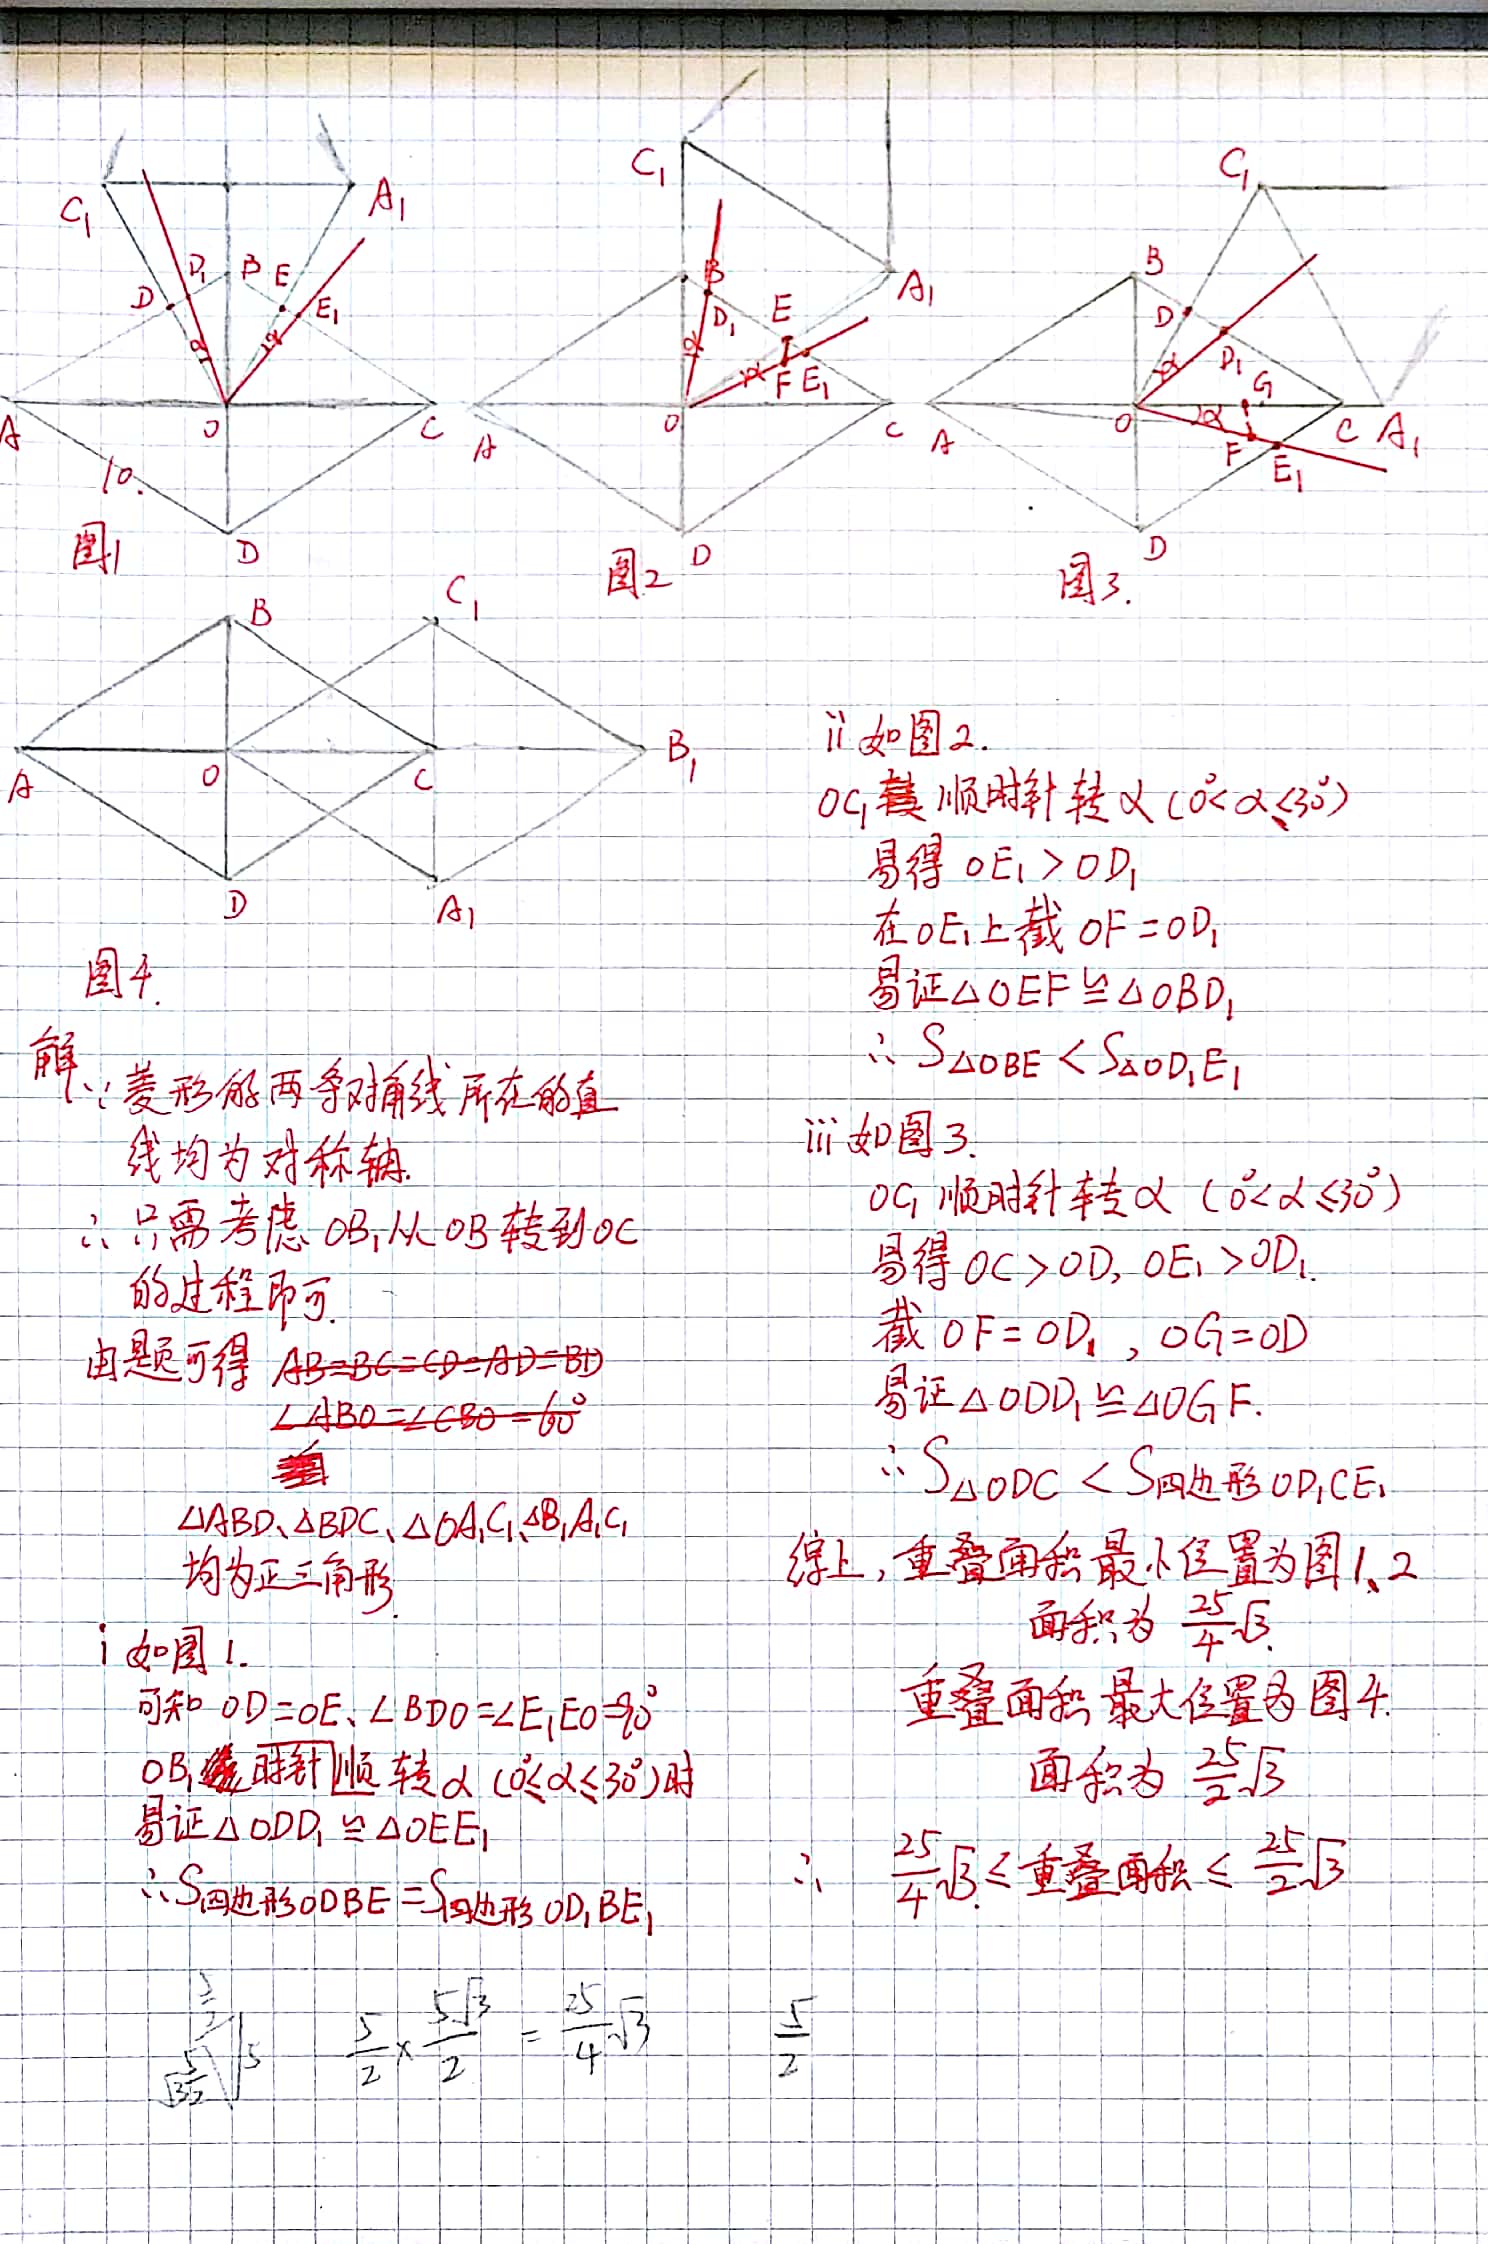 C₁
A₁
D₁
B
E
D
E₁
α
α
A
O
C
10.
D
图1
C₁
A₁
B
D₁
E
α
α
F
E₁
O
A
C
D
图2
C₁
B
D
D₁
α
G
α
A
O
C
A₁
F
E₁
D
图3.
B
C₁
A
O
C
B₁
D
A₁
图4.
解
∵菱形的两条对角线所在的直
线均为对称轴.
∴只需考虑OB₁从OB转到OC
的过程即可.
由题可得 AB=BC=CD=AD=BD
∠ABO=∠CBO=60°
△ABD、△BDC、△OA₁C₁、△B₁A₁C₁
均为正三角形.
i 如图1.
可知 OD=OE、∠BDO=∠E₁EO=90°
OB₁时针顺转α(0°≤α≤30°)时
易证△ODD₁≌△OEE₁
∴S四边形ODBE=S四边形OD₁BE₁
5
5/2×5√3/2=25/4√3
5/2
ii 如图2.
OC₁顺时针转α(0°<α≤30°)
易得 OE₁>OD₁
在OE₁上截 OF=OD₁
易证△OEF≌△OBD₁
∴S△OBE<S△OD₁E₁
iii 如图3.
OC₁顺时针转α (0°<α≤30°)
易得OC>OD, OE₁>OD₁.
截 OF=OD₁, OG=OD
易证△ODD₁≌△OGF.
∴S△ODC<S四边形OD₁CE₁
综上,重叠面积最小位置为图1、2
面积为 25/4√3.
重叠面积最大位置为图4.
面积为 25/2√3
∴ 25/4√3≤重叠面积≤25/2√3